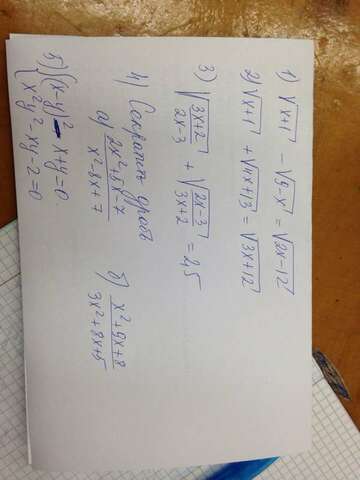 1) √x+1 - √9-x = √2x-12
2) √x+1 + √4x+13 = √3x+12
3) √3x+2/2x-3 + √2x-3/3x+2 = 2,5
4) Сократить дробь
а) 2x²+5x-7/x²-8x+7 б) x²+9x+8/3x²+8x+5
5) {(x-y)²-x+y=0
x²y²-xy-2=0